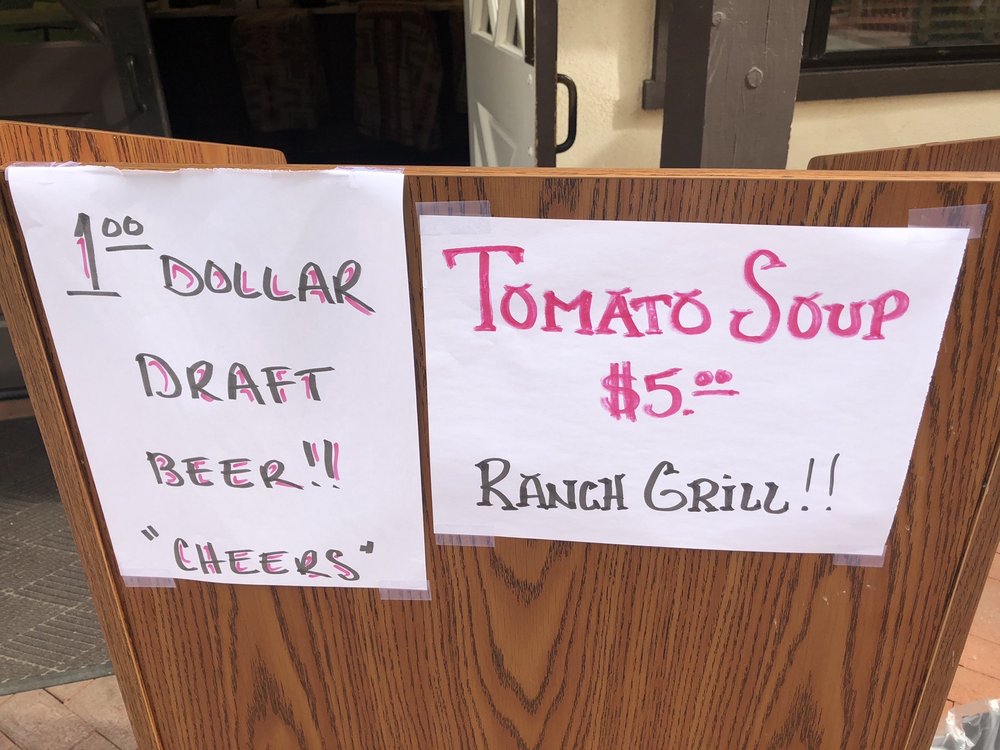 1.00 DOLLAR
DRAFT
BEER!!
"CHEERS"
TOMATO SOUP
$5.00
RANCH GRILL!!